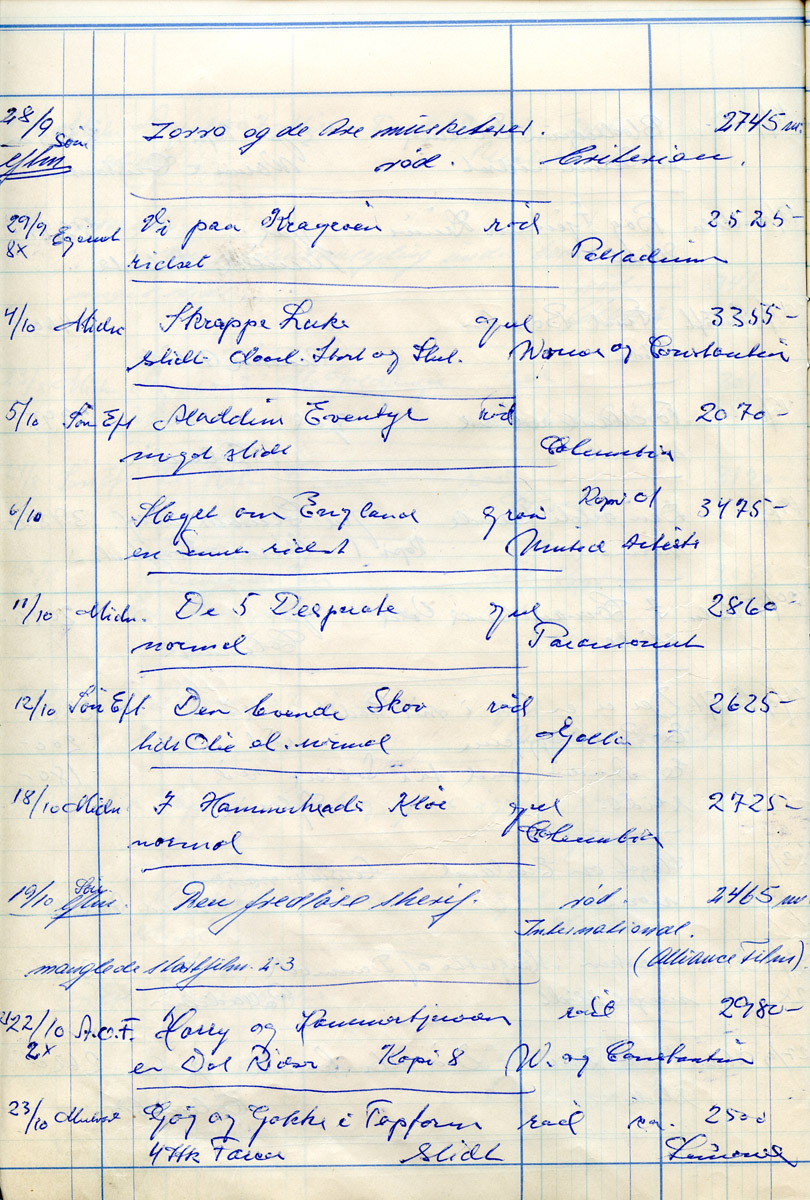 28/9 Søn Zorro og de tre musketerer. 2745 m.
eftm rød. Criterion.
29/9 Vi paa Krageøen rød 2525-
8x ridset Palladium
4/10 Midn. Skrappe Luke gul 3355-
Slidt Start og Slut. Warner og Constantin
5/10 Søn Eft Aladdins Eventyr rød 2070-
noget slidt Columbia
6/10 Slaget om England grøn Kopi 01 3475-
en ridset United Artists
11/10 Midn. De 5 Desperate gul 2860-
normal Paramount
12/10 Søn Eft Den levende Skov rød 2625-
lidt Olie el. normal Gloria
18/10 Midn. I Hammerheads Kløer gul 2725-
normal Columbia
19/10 Søn Den fredløse sherif. rød. 2465 m.
eftm. International.
manglede startfilm 2-3 (Alliance Film)
22/10 A.O.F. Harry og Kammertjeneren rød 2980-
2x en Del Ridser Kopi 8 W. og Constantin
23/10 Gøg og Gokke i Topform rød ca. 2500
4 Stk Farcer Slidt